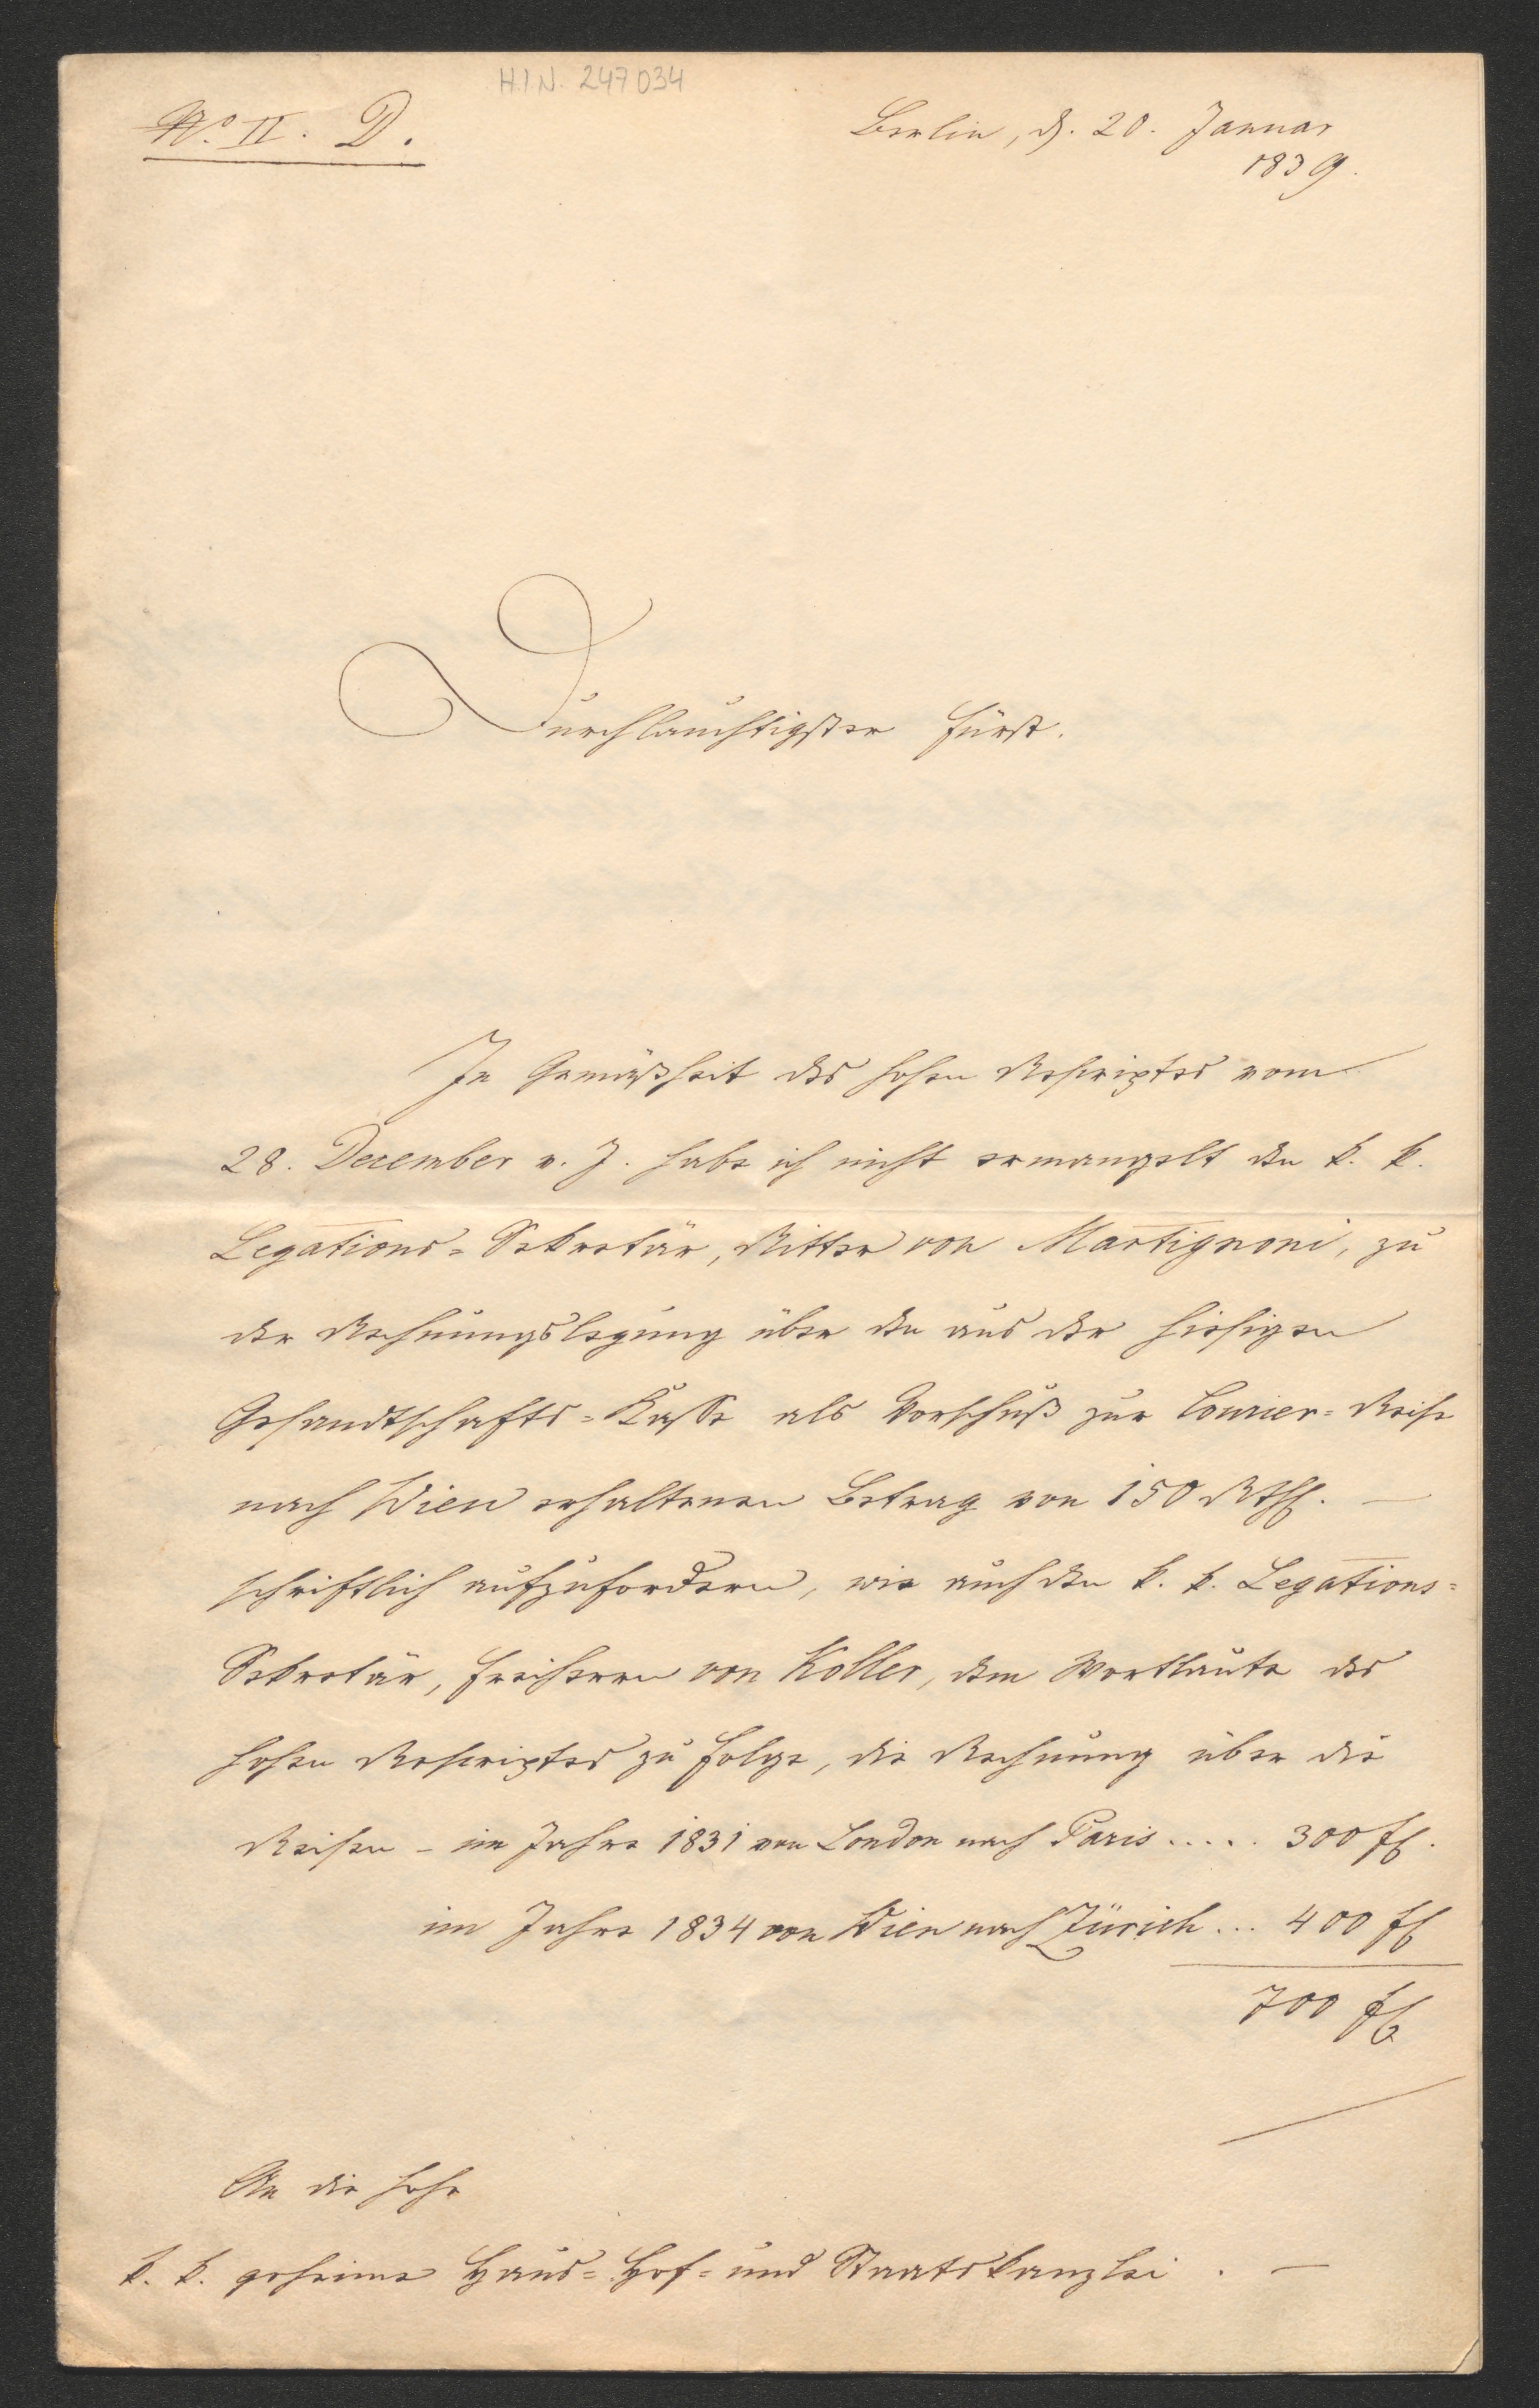 H.I.N. 247034
No. II. D.
Berlin, d. 20. Januar
1839.
Durchlauchtigster Fürst.
In Gemäßheit des hohen Rescriptes vom
28. December v. J. habe ich nicht ermangelt den k. k.
Legations=Sekretär, Ritter von Martignoni, zu
der Rechnungslegung über den aus der hiesigen
Gesandtschafts=Kasse als Vorschuß zur Courier=Reise
nach Wien erhaltenen Betrag von 150 Rthl. —
schriftlich aufzufordern, wie auch den k. k. Legations=
Sekretär, Freiherrn von Koller, dem Wortlaute des
hohen Rescriptes zu Folge, die Rechnung über die
Reisen – im Jahre 1831 von London nach Paris ..... 300 fl.
im Jahre 1834 von Wien nach Zürich ... 400 fl
700 fl
An die hohe
k. k. geheime Haus= Hof= und Staatskanzlei . —